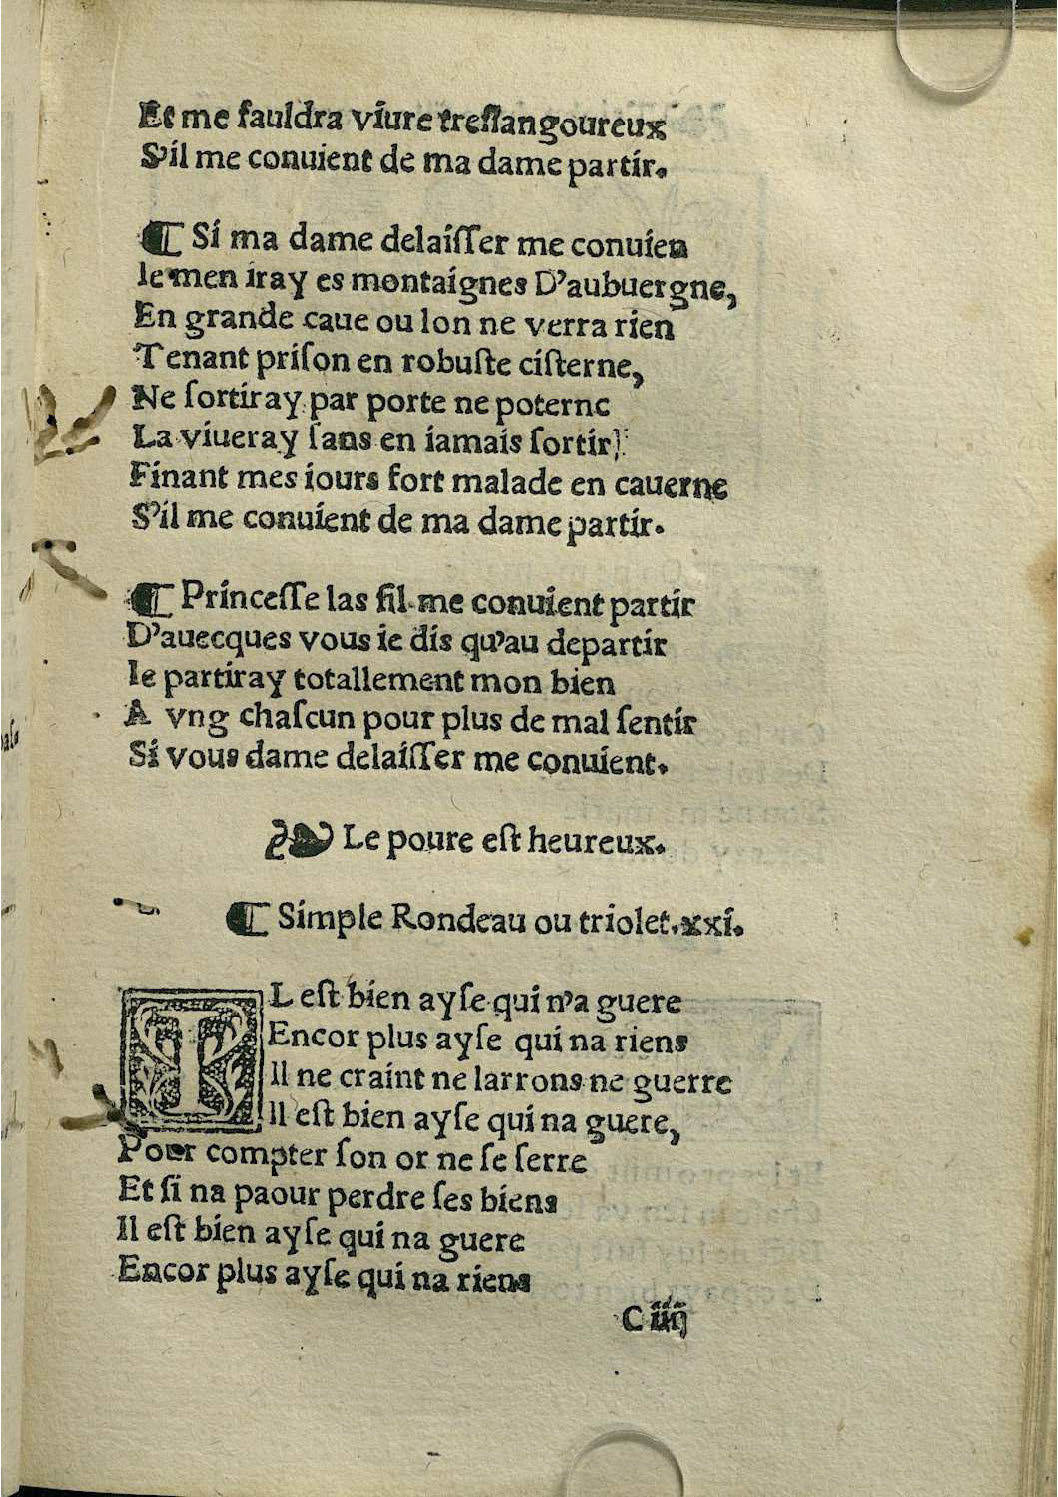 Et me fauldra viure treſlangoureux
S'il me conuient de ma dame partir.
¶ Si ma dame delaiſſer me conuien
Ie men iray es montaignes D'aubuergne,
En grande caue ou lon ne verra rien
Tenant priſon en robuſte ciſterne,
Ne ſortiray par porte ne poterne
La viueray ſans en iamais ſortir
Finant mes iours fort malade en cauerne
S'il me conuient de ma dame partir.
¶ Princeſſe las ſil me conuient partir
D'auecques vous ie dis qu'au departir
Ie partiray totallement mon bien
A vng chaſcun pour plus de mal ſentir
Si vous dame delaiſſer me conuient.
❧ Le poure eſt heureux.
¶ Simple Rondeau ou triolet.xxi.
IL eſt bien ayſe qui n'a guere
Encor plus ayſe qui na riens
Il ne craint ne larrons ne guerre
Il eſt bien ayſe qui na guere,
Pour compter ſon or ne ſe ſerre
Et ſi na paour perdre ſes biens
Il eſt bien ayſe qui na guere
Encor plus ayſe qui na riens
C iiij